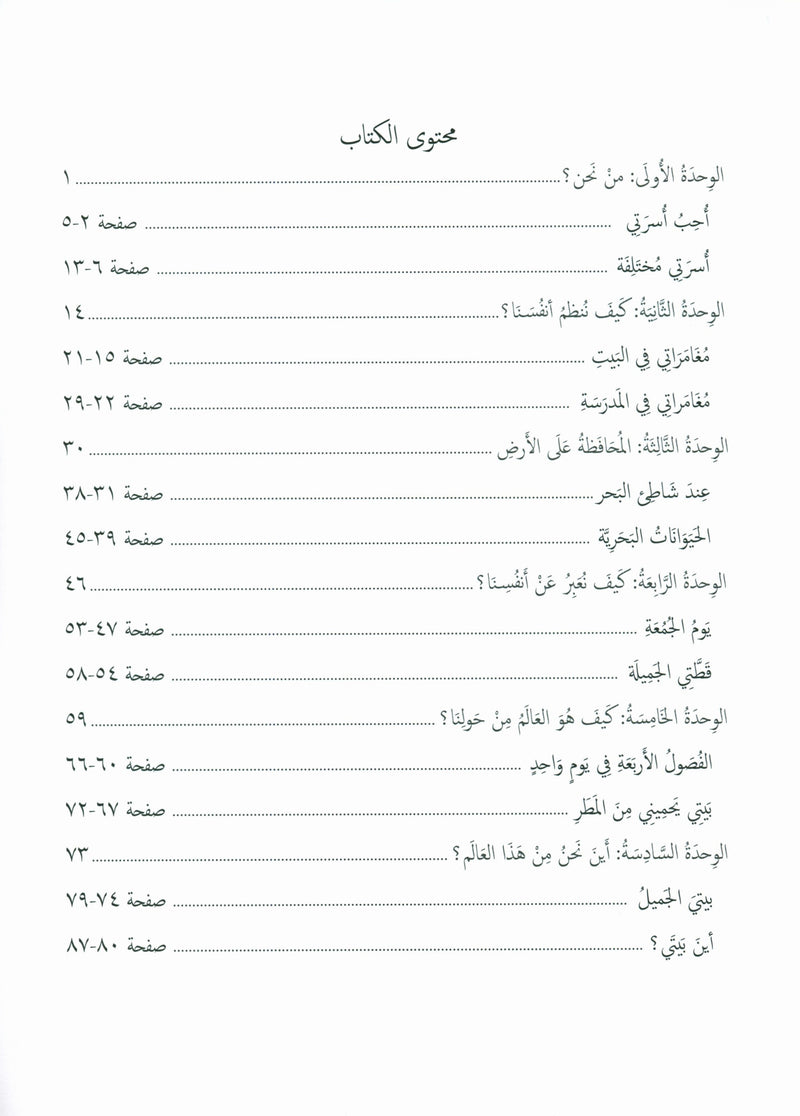 محتوى الكتاب
الوِحدَةُ الأُولَى: منْ نَحن؟ ................ ١
أُحِبُ أُسرَتِي ................ صفحة ٢-٥
أُسرَتِي مُختَلِفَة ................ صفحة ٦-١٣
الوِحدَةُ الثَّانِيَةُ: كَيفَ نُنظمُ أنفُسَنَا؟ ................ ١٤
مُغَامَرَاتِي فِي البَيتِ ................ صفحة ١٥-٢١
مُغَامَراتِي فِي المَدرَسَةِ ................ صفحة ٢٢-٢٩
الوِحدَةُ الثَّالِثَةُ: المُحَافَظةُ عَلَى الأَرضِ ................ ٣٠
عِندَ شَاطِئ البَحر ................ صفحة ٣١-٣٨
الحَيَوَانَاتُ البَحَرِيَّة ................ صفحة ٣٩-٤٥
الوِحدَةُ الرَّابِعَةُ: كَيفَ نُعَبِرُ عَنْ أَنفُسِنَا؟ ................ ٤٦
يَومُ الجُمُعَةِ ................ صفحة ٤٧-٥٣
قَطَّتِي الجَمِيلَة ................ صفحة ٥٤-٥٨
الوِحدَةُ الخَامِسَةُ: كَيفَ هُوَ العَالَمُ مِنْ حَولِنَا؟ ................ ٥٩
الفُصَولُ الأَربَعَةِ فِي يَومٍ وَاحِدٍ ................ صفحة ٦٠-٦٦
بَيتِي يَحمِينِي مِنَ المَطَرِ ................ صفحة ٦٧-٧٢
الوِحدَةُ السَّادِسَةُ: أَينَ نَحنُ مِنْ هَذَا العَالَم؟ ................ ٧٣
بيتيَ الجَميلُ ................ صفحة ٧٤-٧٩
أينَ بَيتَي؟ ................ صفحة ٨٠-٨٧